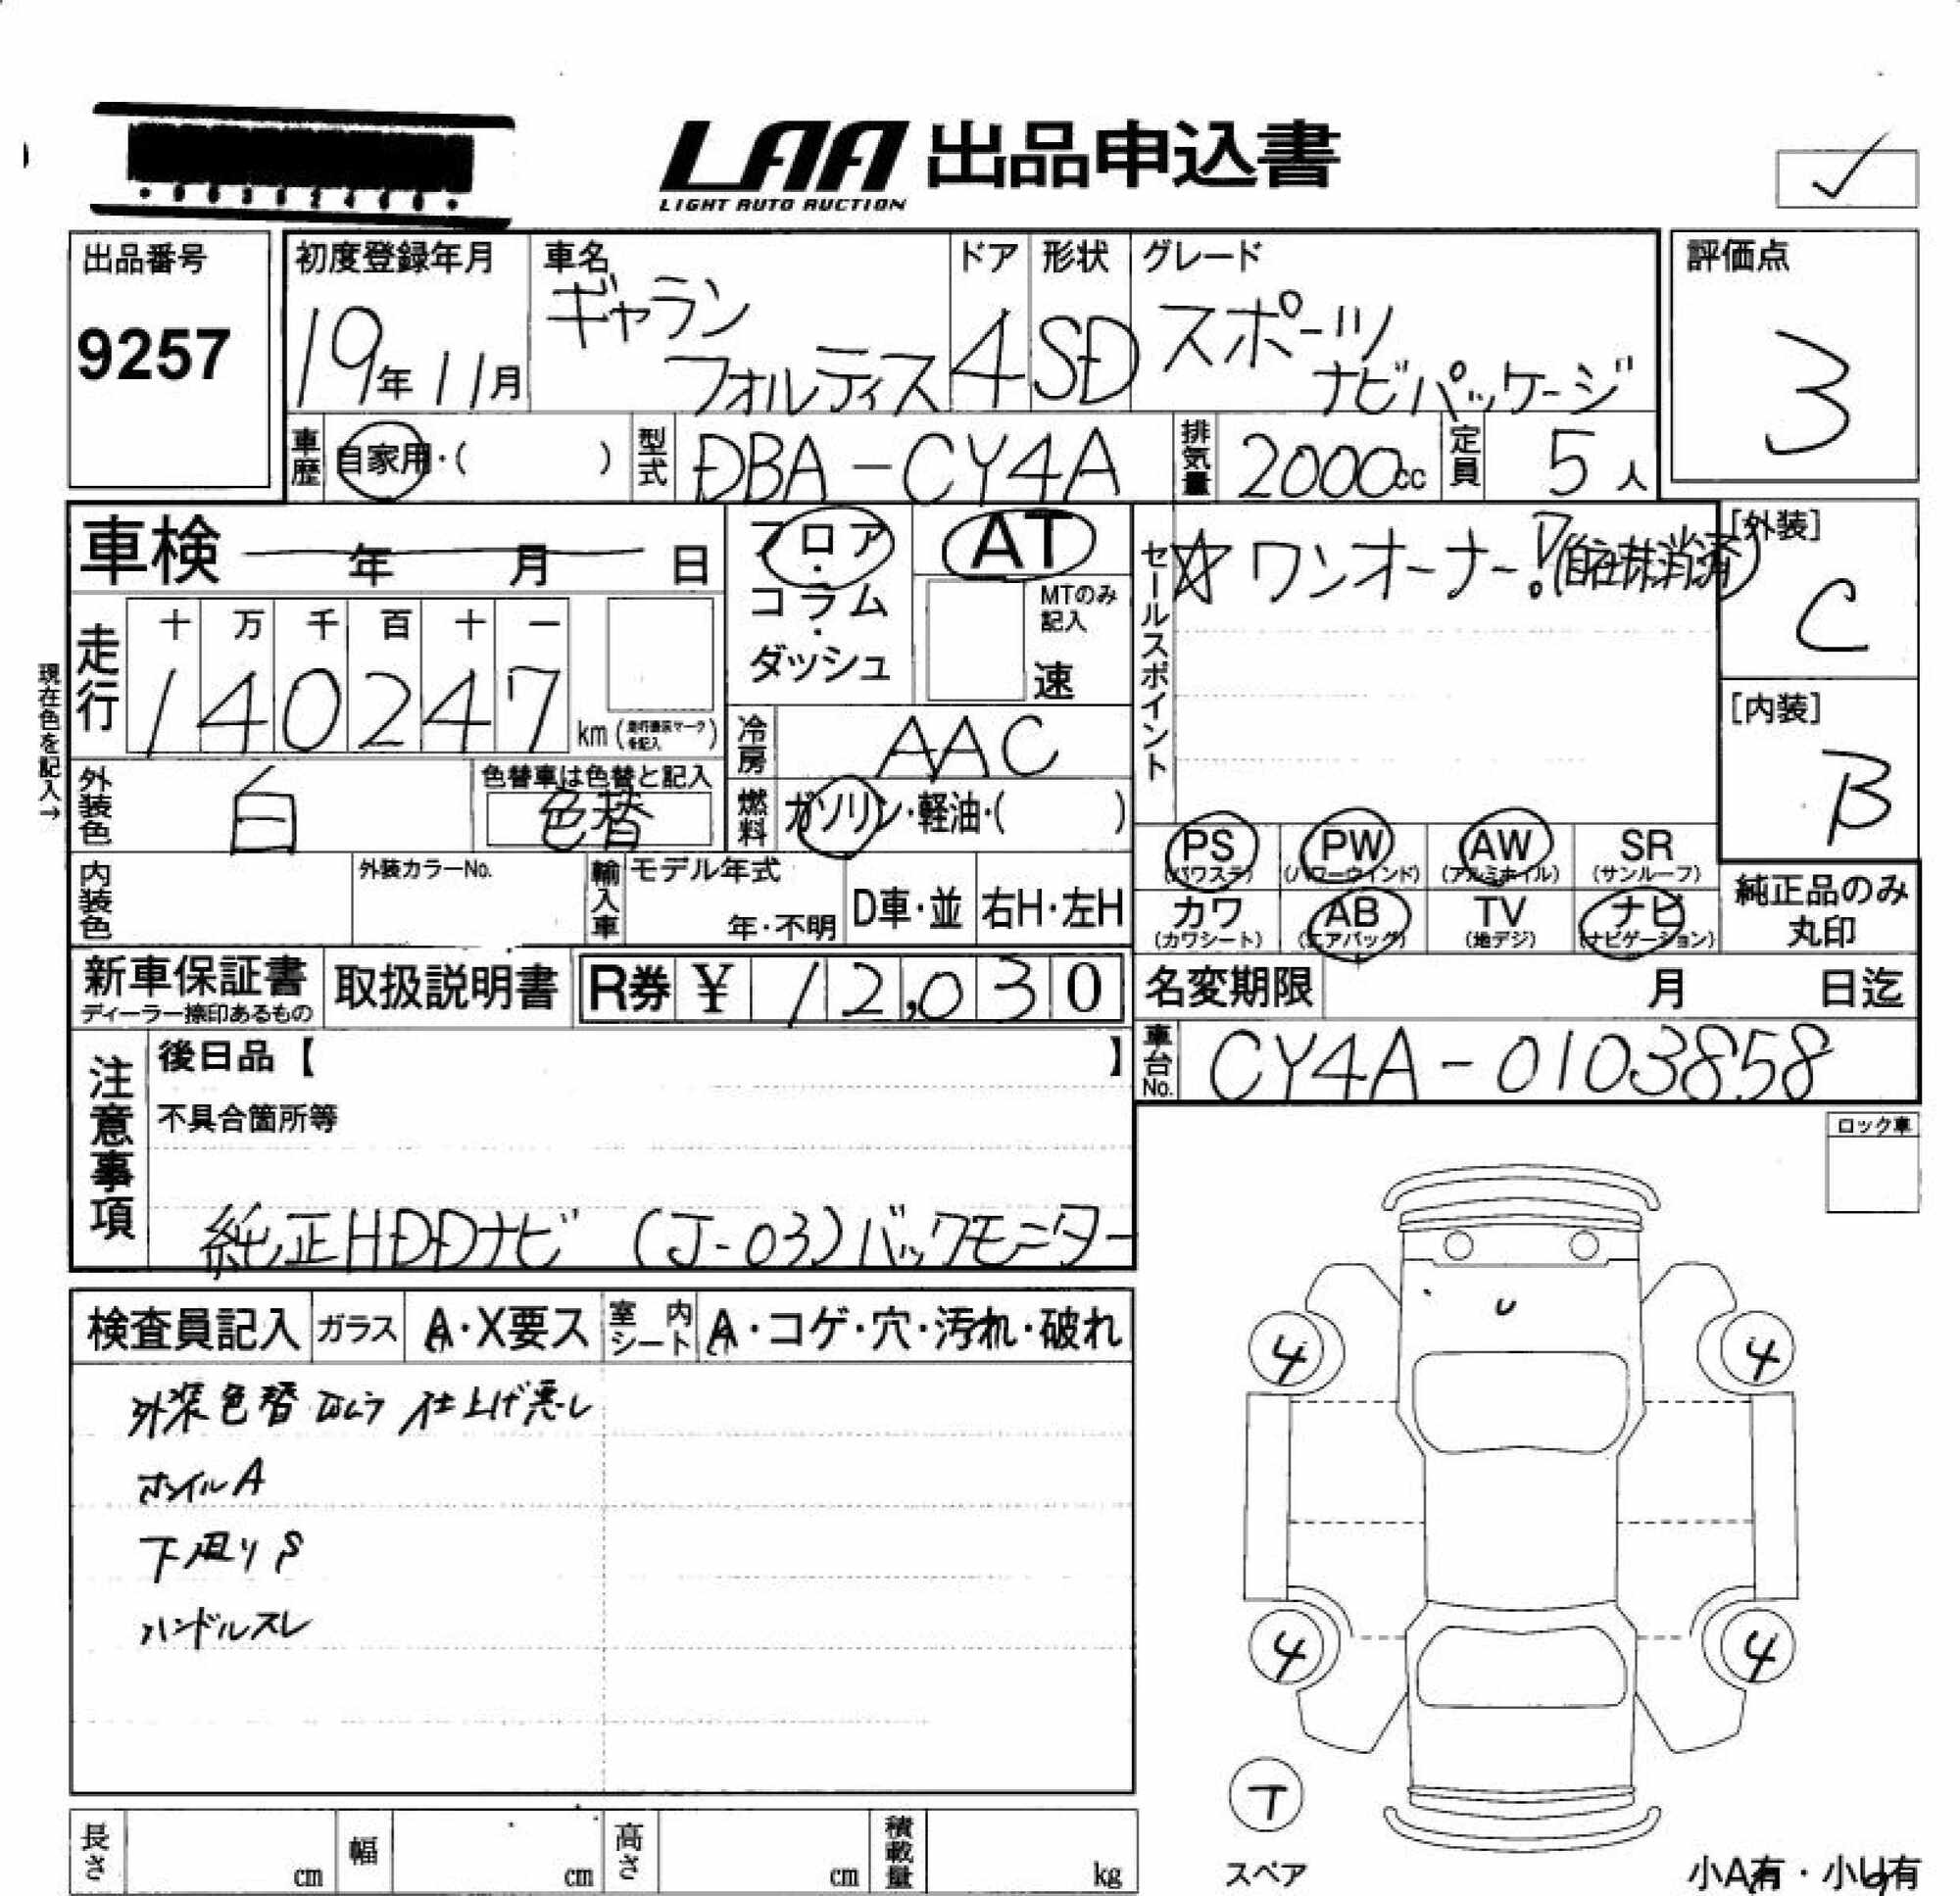 LAA 出品申込書
LIGHT AUTO AUCTION
出品番号
9257
初度登録年月
19年11月
車名
ギャラン
フォルティス
ドア
4
形状
SD
グレード
スポーツ
ナビパッケージ
評価点
3
車歴
自家用・( )
型式
DBA-CY4A
排気量
2000cc
定員
5人
車検 年 月 日
フロア
・
コラム
・
ダッシュ
AT
MTのみ
記入
速
セールスポイント
☆ワンオーナー!
[外装]
C
[内装]
B
現在色を記入→
走行
十 万 千 百 十 一
140247
km
冷房
AAC
外装色
白
色替車は色替と記入
色替
燃料
ガソリン・軽油・( )
PS
(パワステ)
PW
(パワーウインド)
AW
(アルミホイル)
SR
(サンルーフ)
カワ
(カワシート)
AB
(エアバッグ)
TV
(地デジ)
ナビ
(ナビゲーション)
純正品のみ
丸印
内装色
外装カラーNo.
輸入車
モデル年式
年・不明
D車・並
右H・左H
新車保証書
ディーラー捺印あるもの
取扱説明書
R券 ¥ 12,030
名変期限 月 日迄
車台No.
CY4A-0103858
注意事項
後日品【 】
不具合箇所等
純正HDDナビ (J-03)バックモニター
ロック車
検査員記入
ガラス
A・X要ス
室内
シート
A・コゲ・穴・汚れ・破れ
外装色替 仕上げ悪し
ホイルA
下廻りS
ハンドルスレ
U
4 4
4 4
T
スペア
長さ cm
幅 cm
高さ cm
積載量 kg
小A有・小U有